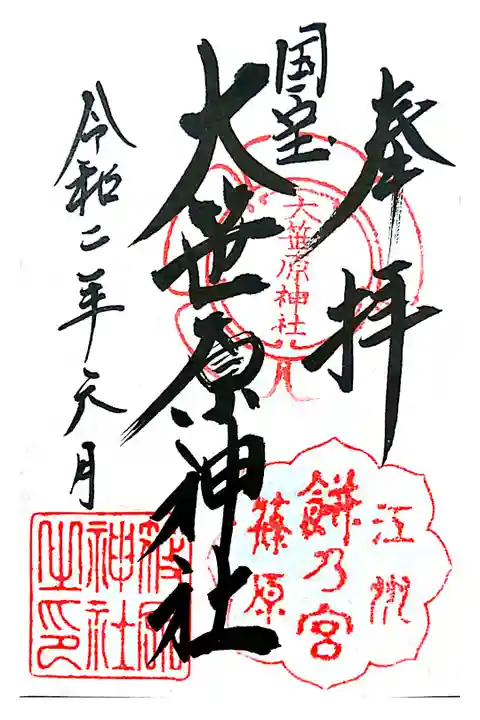 奉拝
国宝
大笹原神社
令和二年六月
大笹原神社
江州
餅乃宮
篠原
篠原
神社
之印